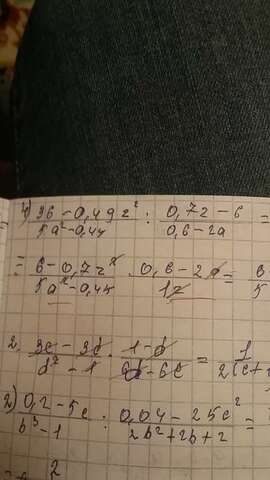 1) 36 - 0,49z² / 5a² - 0,45 : 0,7z - 6 / 0,6 - 2a =
= 6 - 0,7z² / 5a² - 0,45 · 0,6 - 2a / 1z = 6 / 5
2. 3c - 3d / d² - 1 · 1 - d / 6d - 6c = 1 / 2(c +
2) 0,2 - 5c / b³ - 1 : 0,04 - 25c² / 2b² + 2b + 2 =
2